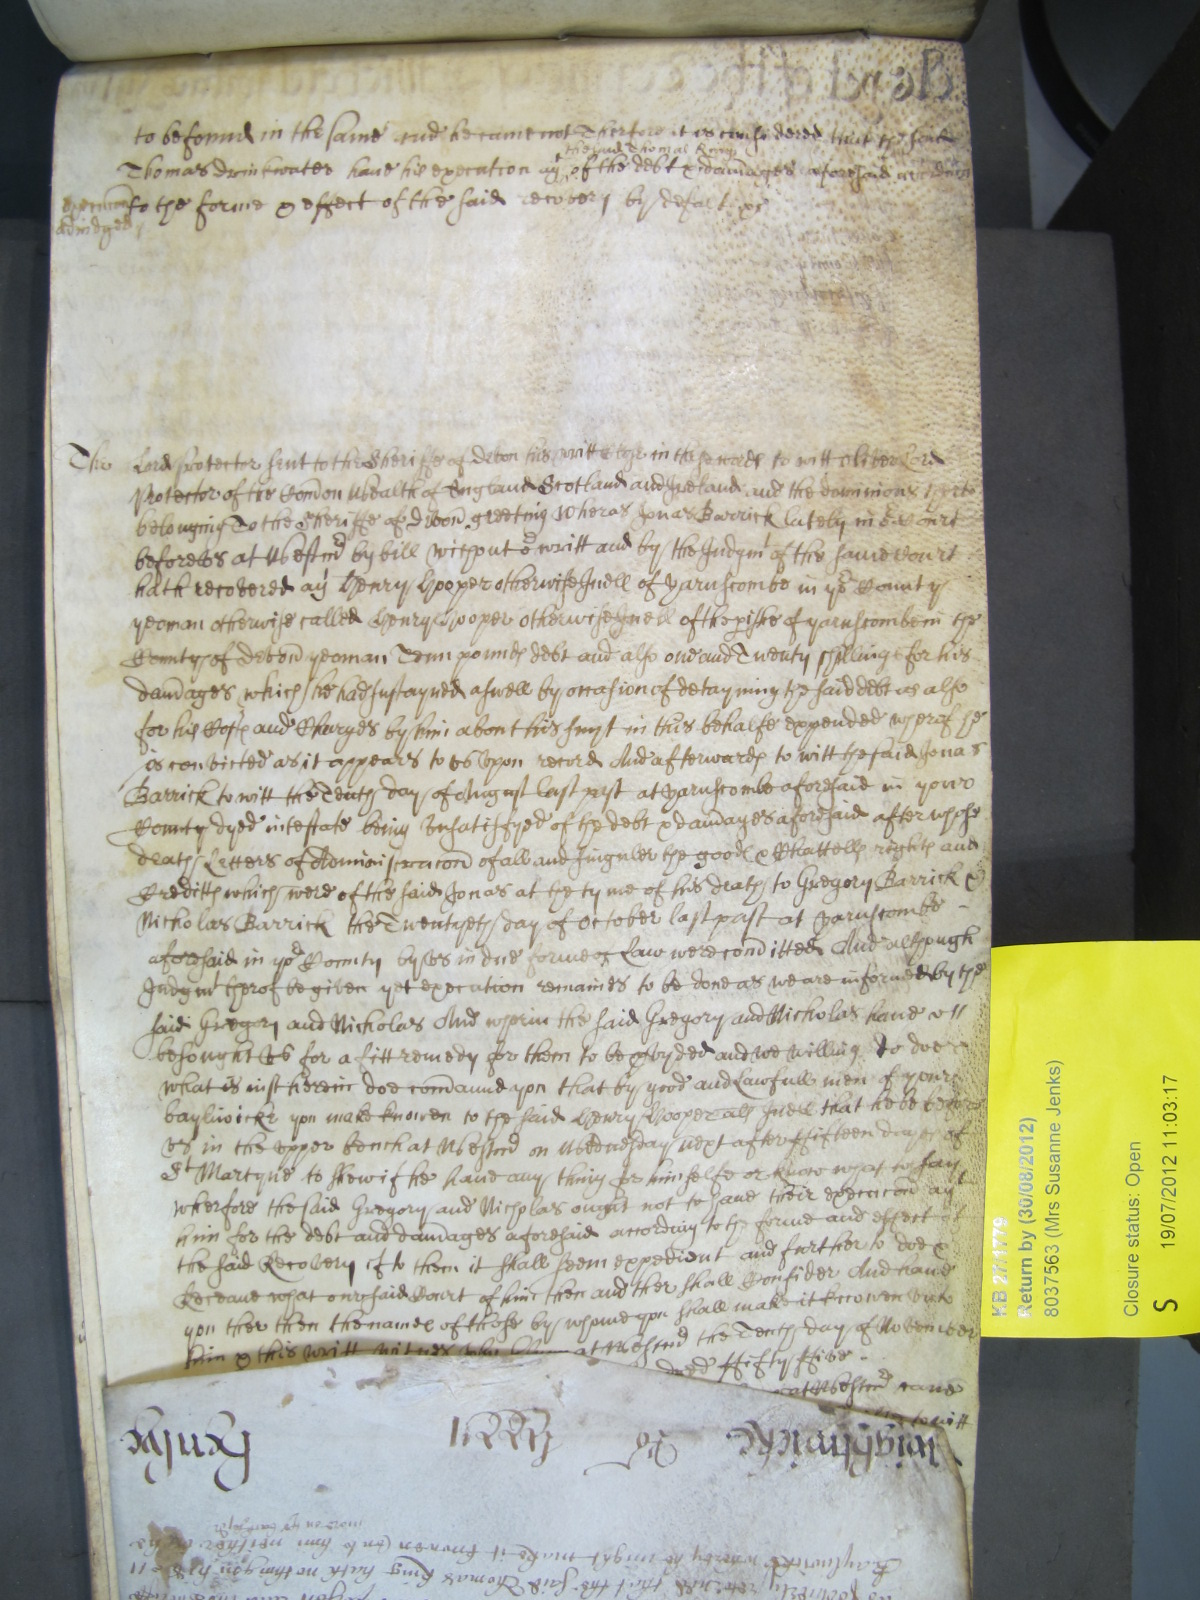 to be found in the same and he came not Therefore it is considered that the said
the said Thomas King
Thomas Drinkwater have his execution agt of the debt & damages aforesaid according
execucon to the forme & effect of the said recovery by default &c
adiudged
The Lord Protector sent to the Sheriffe of Devon his writt close in these words to witt Oliver Lord
Protector of the Comon Wealth of England Scotland and Ireland and the dominions thereto
belonging To the Sheriffe of Devon greeting Wheras Jonas Barrick lately in o Court
before us at Westmr by bill without o writt and by the Judgmt of the same Court
hath recovered agt Henry Hooper otherwise Jnell of Yarnscombe in yor County
yeoman otherwise called Henry Hooper otherwise Jnell of the pishe of Yarnscombe in the
County of Devon yeoman Tenn pounds debt and also one and Twenty shillings for his
damages which he had sustayned aswell by occasion of detayning the said debt as also
for his Costs and Charges by him about his suyt in this behalfe expended wherof he
is convicted as it appears to us upon record And afterwards to witt the said Jonas
Barrick to witt the Tenth day of August last past at Yarnscombe aforesaid in your
County dyed intestate being unsatisfyed of the debt & damages aforesaid after whose
death Letters of Administracon of all and singuler the goods & Chattells rights and
Creditts which were of the said Jonas at the tyme of his death to Gregory Barrick &
Nicholas Barrick the Twentyeth day of October last past at Yarnscombe
aforesaid in yor County by us in due forme of Law were comitted And although
Judgmt therof be given yet execution remaines to be done as we are informed by the
said Gregory and Nicholas And wherin the said Gregory and Nicholas have
besought us for a fitt remedy for them to be provyded and we willing to doe
what is iust herein doe comaund you that by good and Lawfull men of your
bayliwicke you make knowen to the said Henry Hooper als Jnell that he be before
us in the upper bench at Westmr on Wednesday next after ffifteen dayes of
St Martyne to shew if he have any thing for himselfe or know what to say
wherfore the said Gregory and Nicholas ought not to have their execucon agt
him for the debt and damages aforesaid according to the forme and effect of
the said Recovery if to them it shall seem expedient and further to doe &
Receave what our said Court of him then and ther shall Consider And have
you ther then the names of those by whome you shall make it knowen unto
him & this writt witnes at Westmr the Tenth day of November
dred ffifty ffive
at Westmr came
to witt
Wightwicke
Rolle
the said Thomas King hath nothing in his
Bayliwicke wherby he might make it knowen unto him neither is he
KB 27/1779
Return by (30/08/2012)
8037563 (Mrs Susanne Jenks)
Closure status: Open
S 19/07/2012 11:03:17